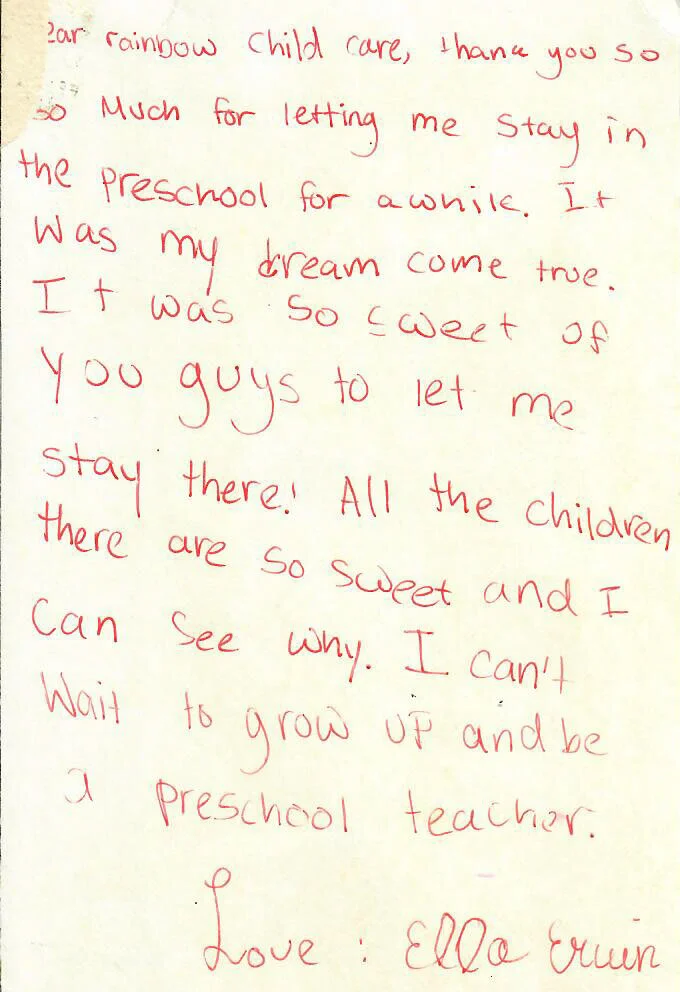 ear rainbow Child care, thank you so
so Much for letting me stay in
the preschool for awhile. It
was my dream come true.
It was so sweet of
you guys to let me
stay there! All the children
there are so sweet and I
can see why. I can't
Wait to grow up and be
a preschool teacher.
Love : Ella Erwin